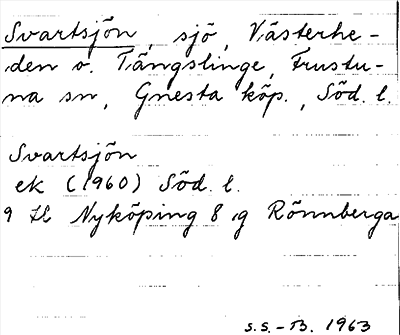 Svartsjön, sjö, Västerhe-
den o. Tängslinge, Frustu-
na sn, Gnesta köp., Söd. l.
Svartsjön
ek (1960) Söd. l.
9 H Nyköping 8 g Rönnberga
S.S.-B. 1963